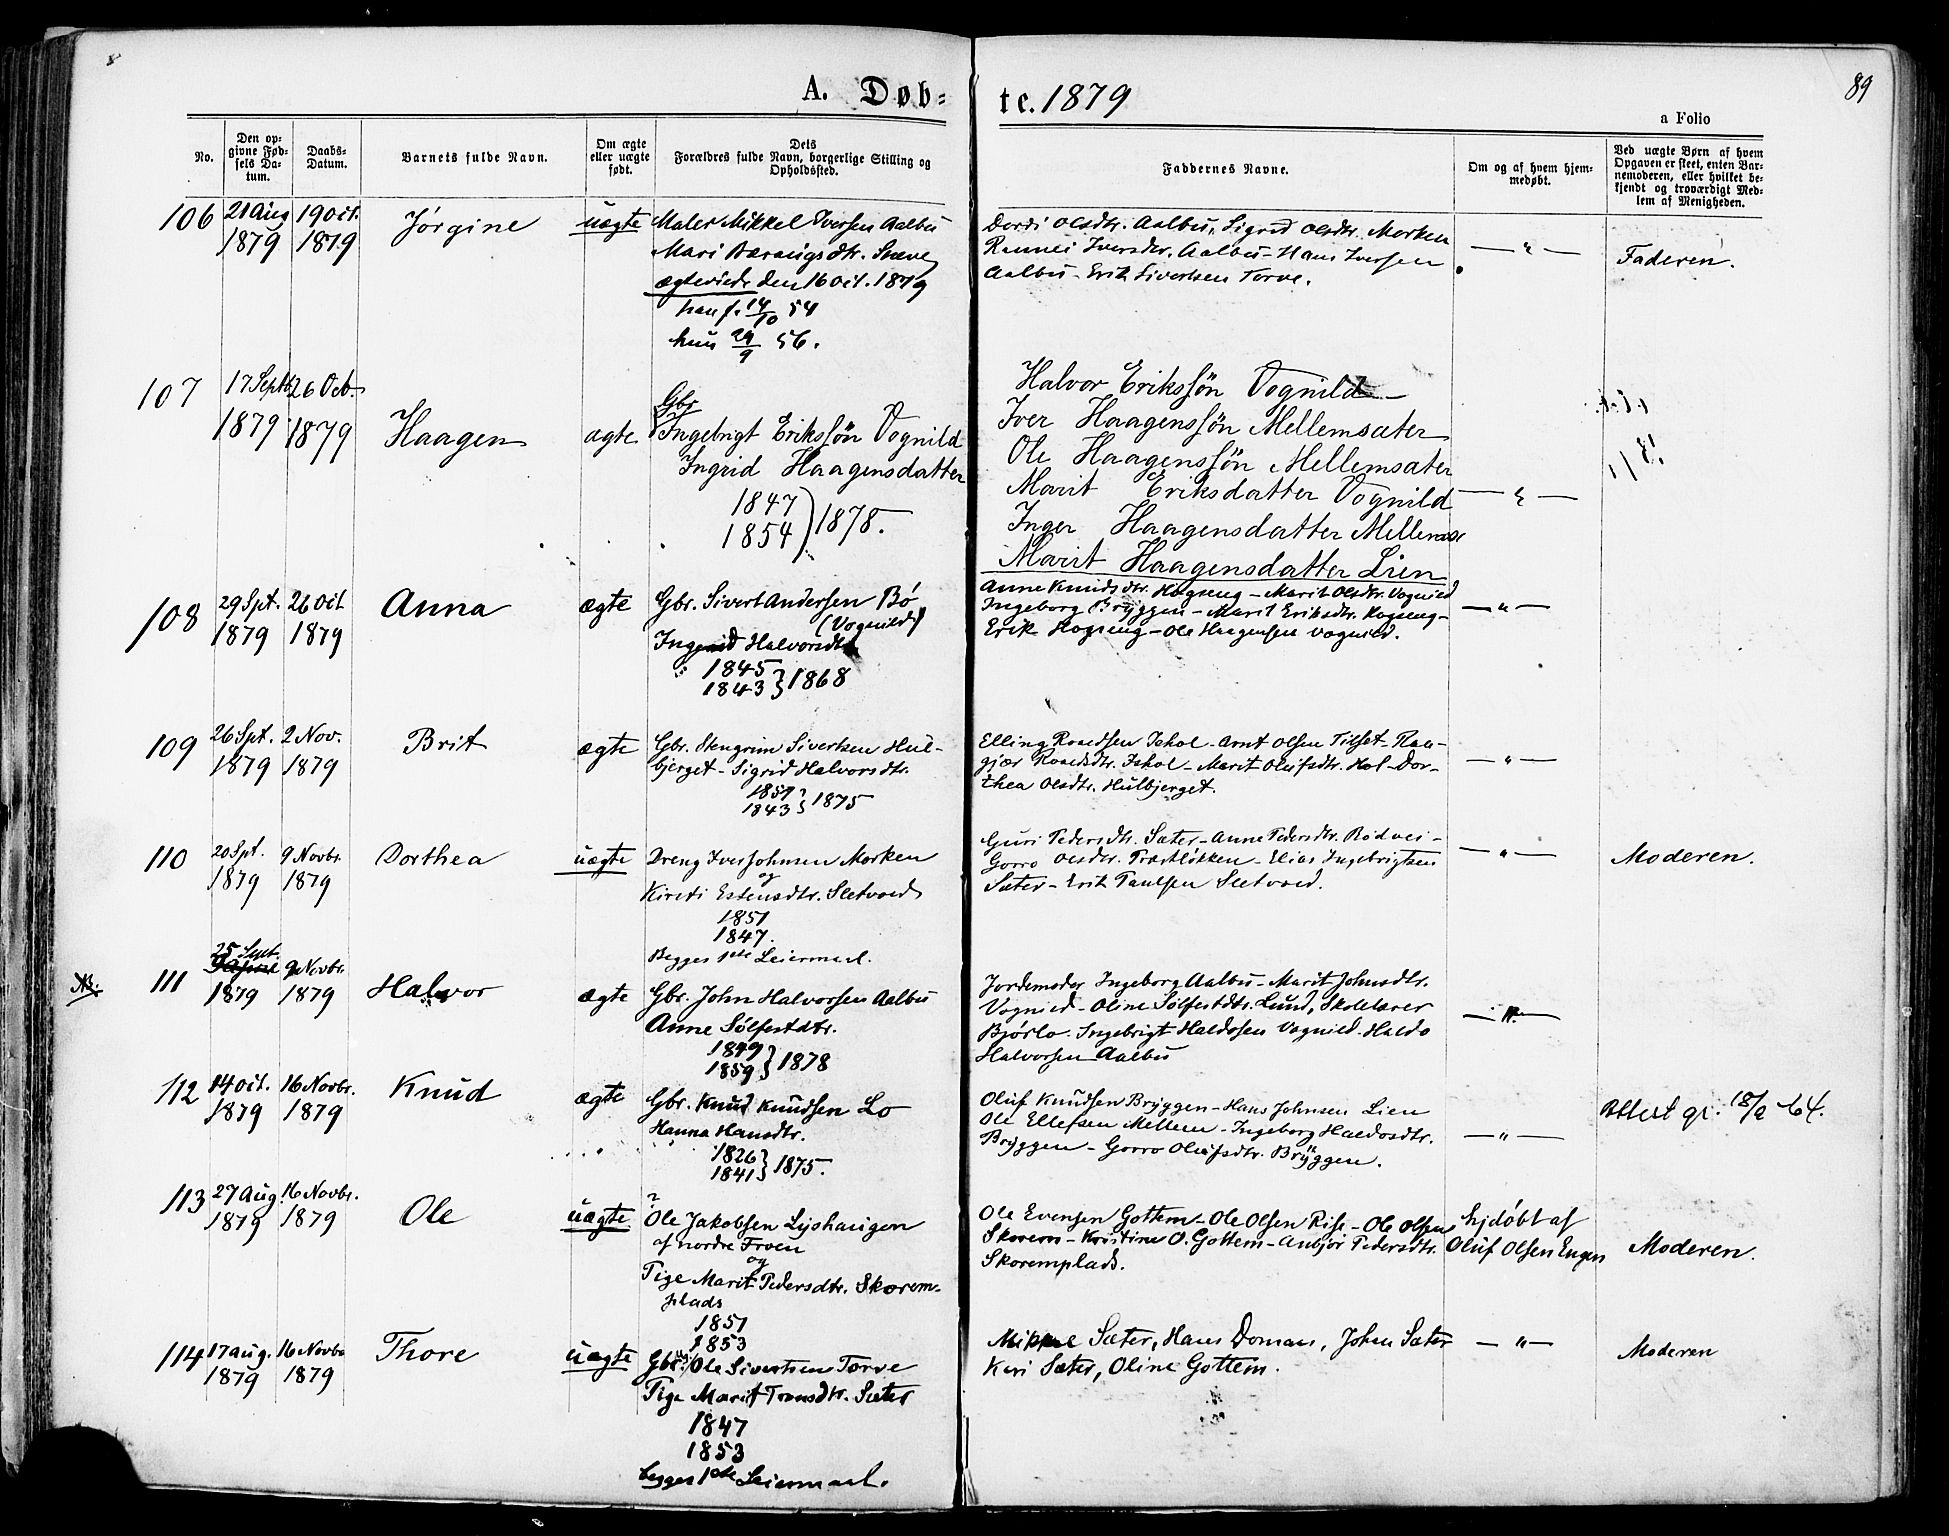 A. Døb=
te. 1879
89
a Folio
No.
Den op-
givne Fød-
sels Da-
tum.
Daabs-
Datum.
Barnets fulde Navn.
Om ægte
eller uægte
født.
Dets
Forældres fulde Navn, borgerlige Stilling og
Opholdssted.
Faddernes Navne.
Om og af hvem hjem-
medøbt.
Ved uægte Børn af hvem
Opgaven er skeet, enten Bar-
nemoderen, eller hvilket be-
kjendt og troværdigt Med-
lem af Menigheden.
106
21 Aug
1879
19 Oct.
1879
Jørgine
uægte
Maler Mikkel Iversen Aalbu
Mari Bæraugsdtr. Sneve
ægteviede den 16 Oct. 1879
han f. 14/10 54
hun 29/9 56.
Dordi Olsdtr. Aalbu, Sigrid Olsdtr. Morken
Rannei Iversdtr. Aalbu - Hans Iversen
Aalbu - Erik Sivertsen Torve.
— " —
Faderen.
107
17 Septb
1879
26 Octb.
1879
Haagen
ægte.
Gbr
Ingebrigt Erikssøn Vognild
Ingrid Haagensdatter
1847
1854 ) 1878.
Halvor Erikssøn Vognild
Iver Haagenssøn Mellemsæter
Ole Haagenssøn Mellemsæter
Marit Eriksdatter Vognild
Inger Haagensdatter Mellemsæ
Marit Haagensdatter Lien
— " —
108
29 Spt.
1879
26 Oct
1879
Anna
ægte
Gbr. Sivert Andersen Bø
(Vognild)
Halvorsdtr
1845
1843 } 1868
Anne Knudsdtr. Hogseng - Marit Olsdtr. Vognild
Ingeborg Bryggen - Marit Eriksdtr. Hogseng -
Erik Hogseng - Ole Haagensen Vognild.
— " —
109
26 Spt.
1879
2 Nov.
1879
Brit
ægte
Gbr. Stengrim Sivertsen Hul-
bjerget - Sigrid Halvorsdtr.
1851
1843 } 1875
Elling Roaldsen Ishol - Arnt Olsen Tilset - Ran-
gjær Roaldsdtr. Ishol - Marit Olufsdtr. Hol - Dor-
thea Olsdtr. Hulbjerget.
— " —
110
20 Spt.
1879
9 Novbr.
1879
Dorthea
uægte
Dreng Iver Johnsen Morken
og
Kirsti Estensdtr. Sletvold
1851
1847.
Begges 1ste Leiermaal.
Guri Pedersdtr. Sæter - Anne Pedersdtr. Rødvei -
Gorro Olsdtr. Præstløkken - Elias Ingebrigtsen
Sæter - Erik Paulsen Sletvold.
— " —
Moderen.
NB.
111
25 Sept.
1879
9 Novbr.
1879
Halvor
ægte
Gbr. John Halvorsen Aalbu
Anne Sølfestdtr.
1849
1859 } 1878
Jordemoder Ingeborg Aalbu - Marit Johnsdtr.
Vognild - Oline Sølfestdtr. Lund, Skolelærer
Bjørlo - Ingebrigt Haldosen Vognild - Haldo
Halvorsen Aalbu
— " —
112
14 Oct.
1879
16 Novbr.
1879
Knud
ægte
Gbr. Knud Knudsen Lo
Hanna Hansdtr.
1826
1841 } 1875.
Oluf Knudsen Bryggen - Hans Johnsen Lien
Ole Ellefsen Mellem - Ingeborg Haldosdtr.
Bryggen - Gorro Olufsdtr. Bryggen.
— " —
Attest gi. 18/2 -64.
113
27 Aug.
1879
16 Novbr.
1879
Ole
uægte
?
Ole Jakobsen Lyshaugen
af nordre Froen
og
Pige Marit Pedersdtr. Skorem-
plads
1851
1853
Ole Evensen Gottem - Ole Olsen Rise - Ole Olsen
Skorem - Kristine O. Gottem - Anbjør Pedersdtr.
Skoremplads.
hjdøbt af
Oluf Olsen Engen
Moderen.
114
17 Aug.
1879
16 Novbr
1879
Thore
uægte
Gbr. Ole Sivertsen Torve
Pige Marit Tronsdtr. Sæter
1847
1853
begges 1ste Leiermaal.
Mikkel Sæter, Hans Domaas, John Sæter
Kari Sæter, Oline Gottem.
— " —
Moderen